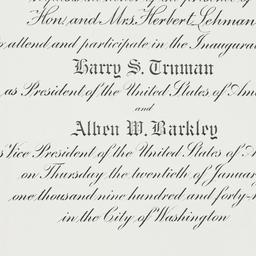 Hon. and Mrs. Herbert Lehman
attend and participate in the Inaugura
Harry S. Truman
as President of the United States of Am
and
Alben W. Barkley
Vice President of the United States of A
on Thursday the twentieth of January
one thousand nine hundred and forty-
in the City of Washington